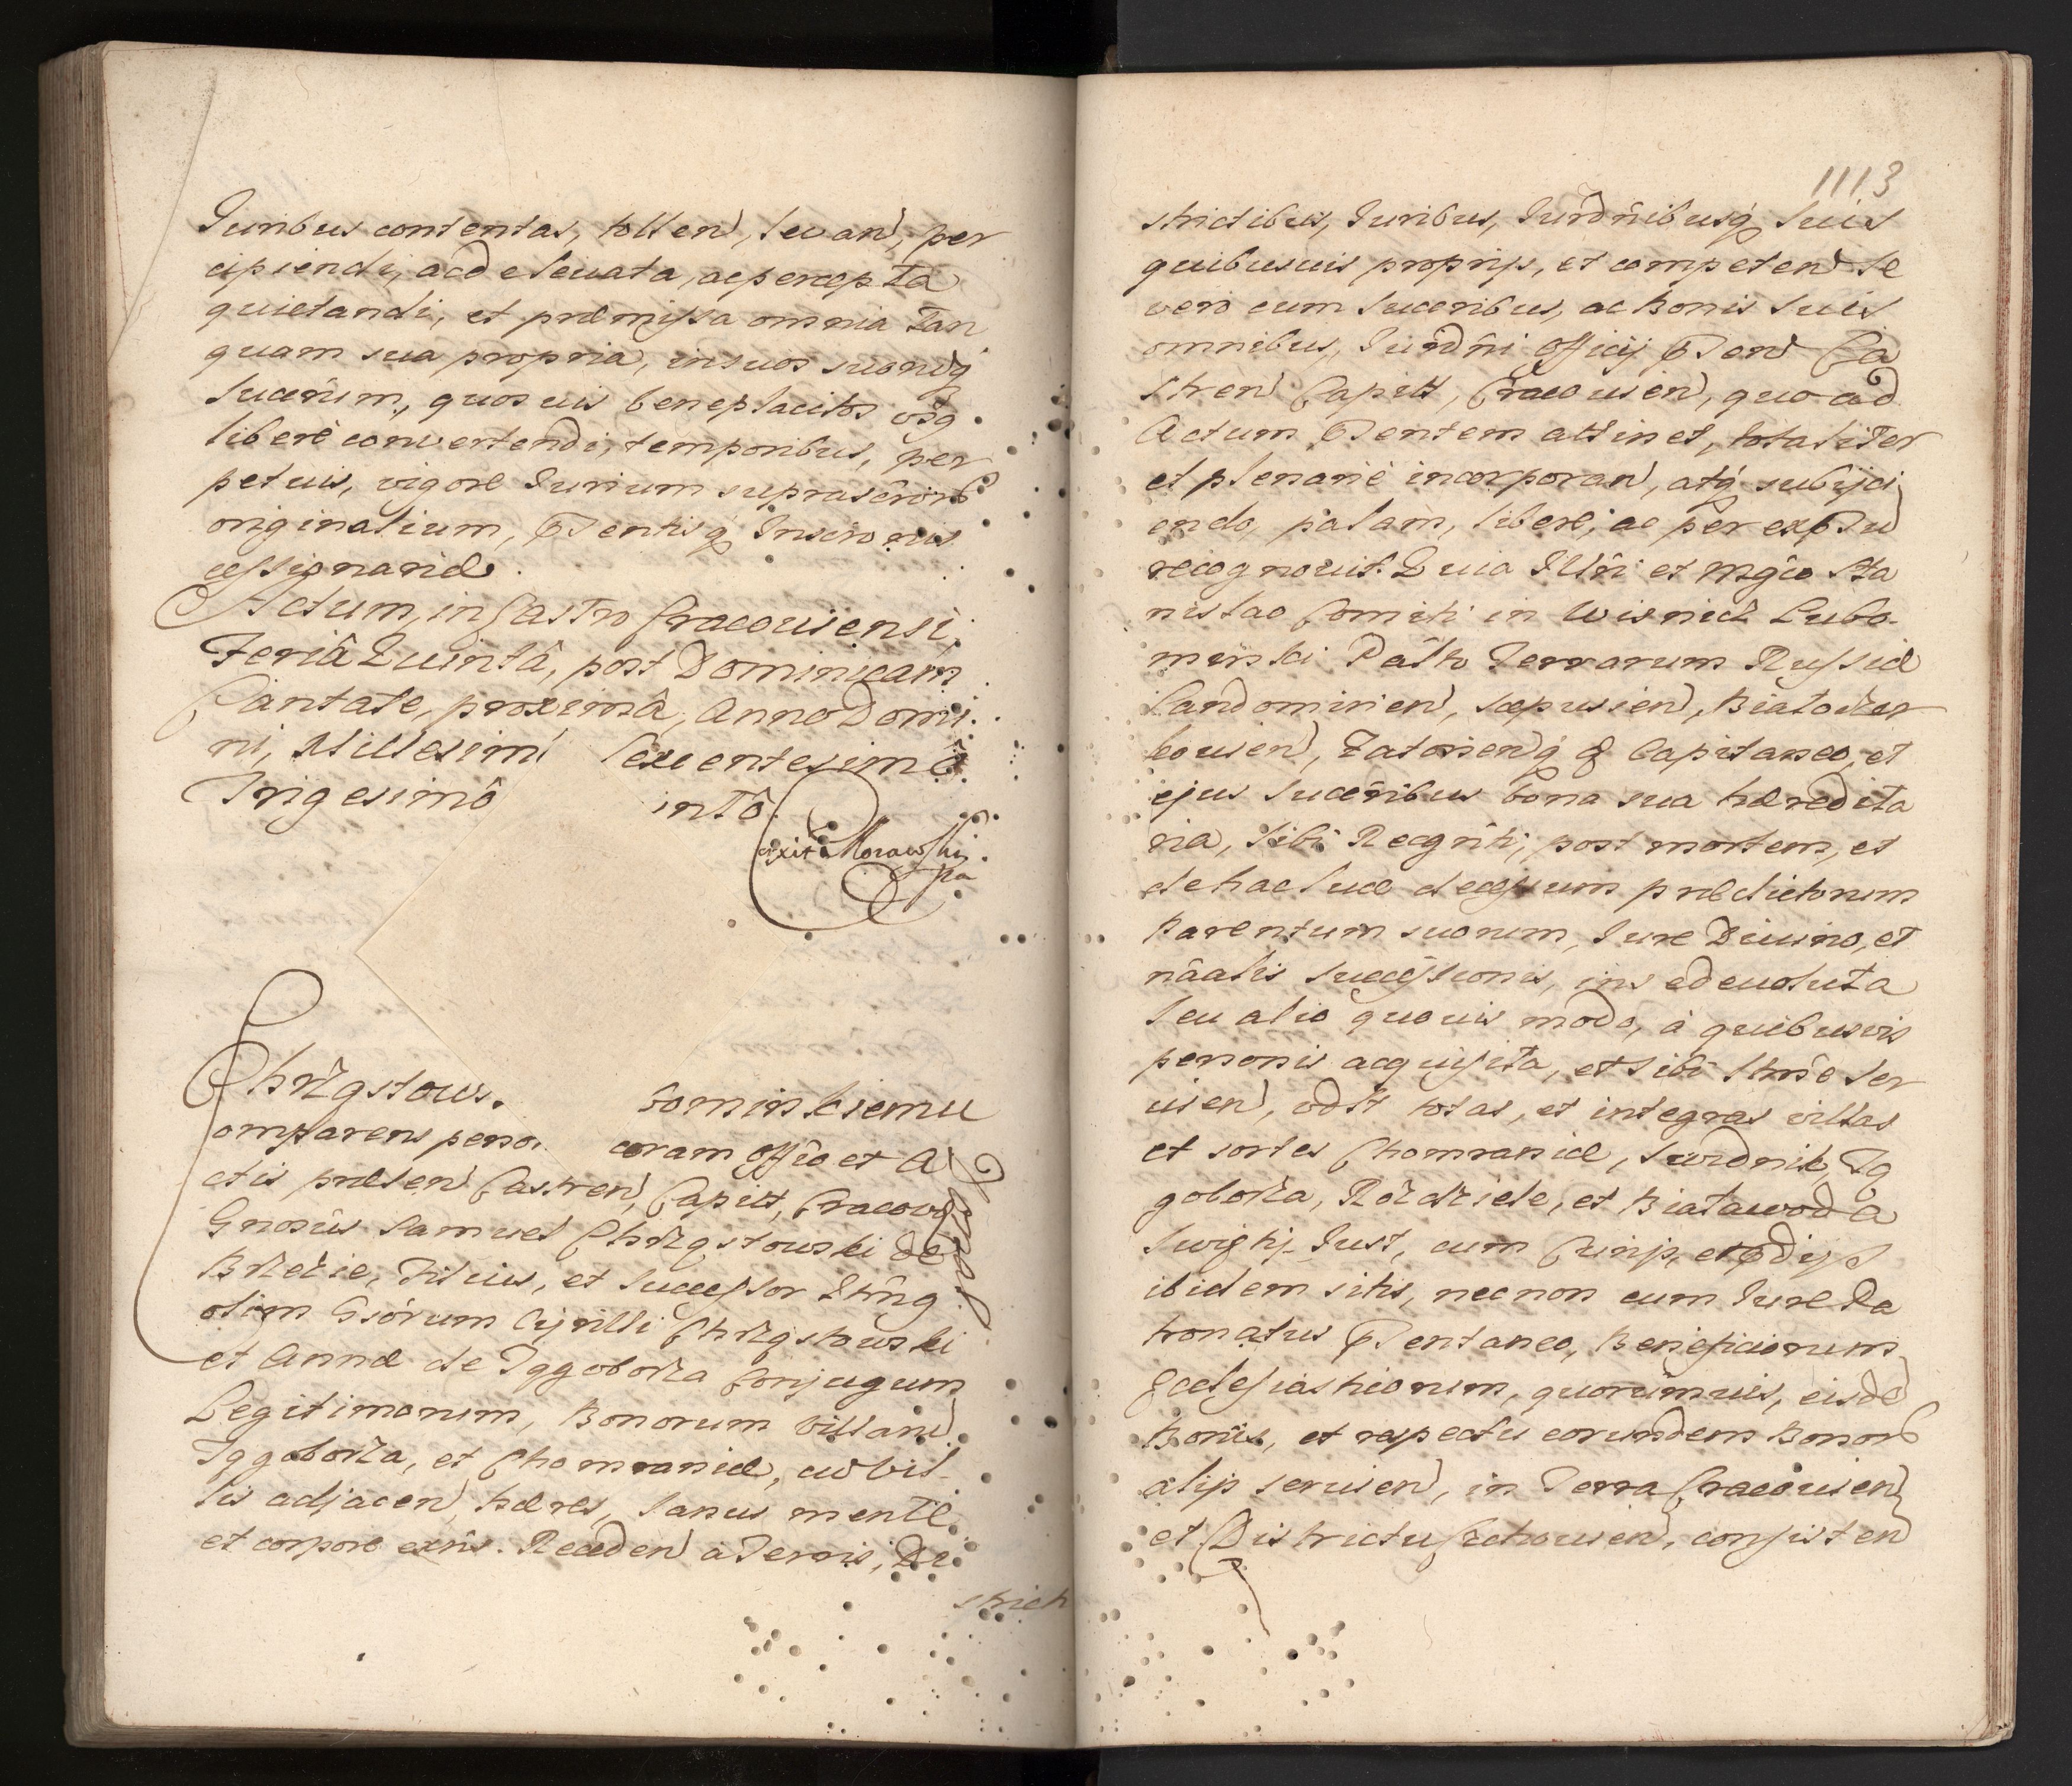 Juribus contentas, tollend, leuand, per
cipiendi, acd eleuata, ac percepta
quietandi, et præmissa omnia tan
quam sua propria, in suos suorūq
Succrum, quosuis beneplacitos vsq
liberè conuertendi, temporibus, per
petuis, vigore Jurium suprascriorū
originalium, pntisq Inscronis
cessionariæ.
Actum, in Castro Cracouiensi,
Feriâ Quintâ, post Dominicam
Cantate, proximâ, Anno Domi
ni, Millesimi Sexcentesimô
Trigesimô intô.
Morawski
Chrząstows. bominskiemu
omparens perso. coram Offio et A
ctis præsen Castren, Capitt, Cracou
Gnosûs Samuel Chrząstowski de
Brzezie, Filius, et Successor
olim Gsôrum Cyrilli Chrząstowski
et Annæ de Zggoborza Conjugum
Legitimorum, Bonorum villarū
Zggoborza, et Chomranicæ, cū vil
lis adjacen, hæres, Sanus mente
et corpore exñs. Receden à Terris, Di
strict
1113
strictibus, Juribus, Jurdnibusq suis
quibusuis proprijs, et competen Se
vero cum Succribus, ac Bonis suis
omnibus, Jurdni Officij pnten Ca
stren Capitt, Cracouien, quo ad
Actum pntentem attinet, totaliter
et plenariè incorporan, atq subijci
endo, palam, liberè, ac per expssū
recognouit. Quia Illri et Mgco Sta
nislao Comiti in Wisnicz Lubo-
mirski Pâtto Terrarum Russiæ
Sandomirien, Scepusien, Białocer
kouien, Zatorien q & Capitaneo, et
ejus Succribus bona sua hæredita
ria, sibi Recgnti, post mortem, et
de hac luce decessum prædictorum
Parentum suorum, Jure Diuino, et
nâalis Successionis, in se deuoluta
seu alio quouis modo, à quibusvis
personis acquisita, et sibi ltme ser
uien, vdlt totas, et integras villas
et sortes Chomranicæ, Swidnik, Zg
goborza, Rozdziele, et Białawoda
Swięti, Just, cum Curijs, et pdijs
ibidem sitis, necnon cum Jure Pa
tronatus pntentaneo, Beneficiorum
Ecclesiasticorum, quorumuis, eisdē
Bonis, et respectu eorundem Bonorū
alijs seruien, in Terra Cracouien
et Districtu Szchouien, consisten